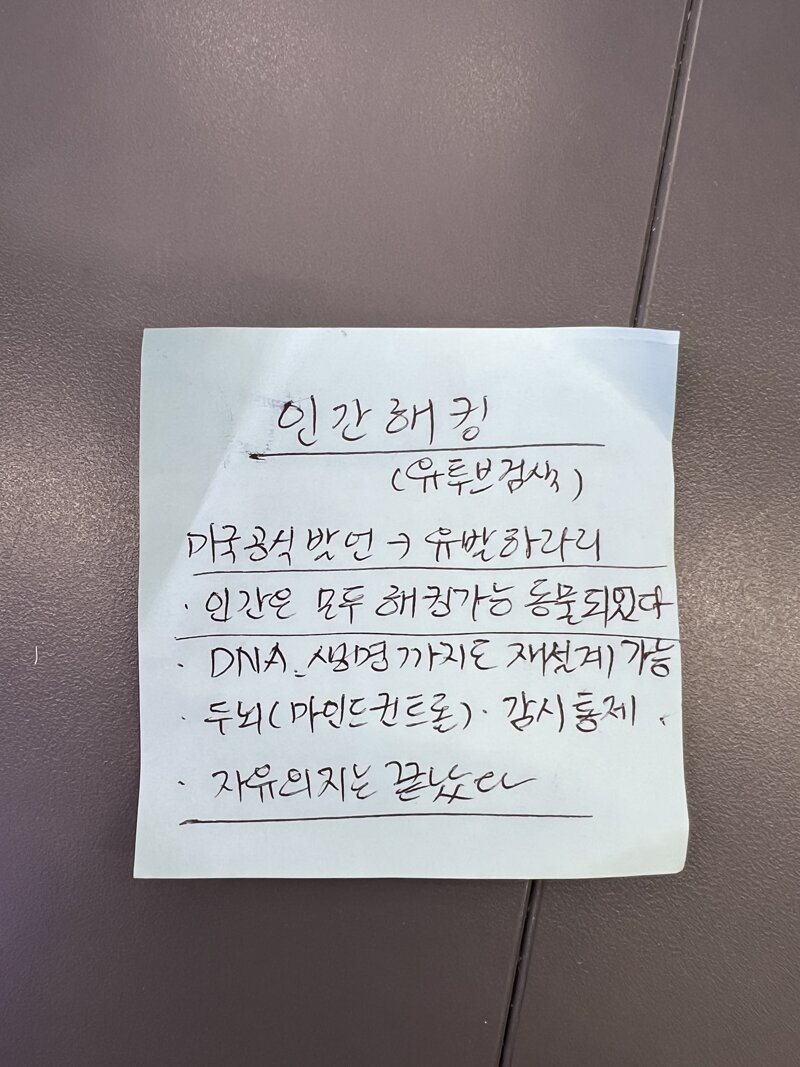 인간해킹
(유투브검색)
미국공식발언→유발하라리
· 인간은 모두 해킹가능 동물되었다
· DNA. 생명까지도 재설계가능
· 두뇌(마인드컨트롤)· 감시통제.
· 자유의지는 끝났다